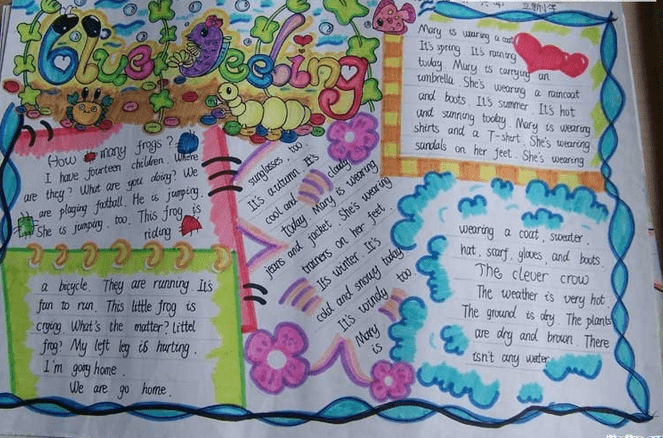 Blue feeling
How many frogs?
I have fourteen children. Where
are they? What are you doing? We
are playing football. He is jumping.
She is jumping, too. This frog is
riding
a bicycle. They are running. It's
fun to run. This little frog is
crying. What's the matter? Littel
frog? My left leg is hurting.
I'm going home.
We are go home.
Mary is wearing a coat
It's spring. It's raining
today. Mary is carrying an
umbrella. She's wearing a raincoat
and boots. It's summer. It's hot
and sunning today. Mary is wearing
shirts and a T-shirt. She's wearing
sandals on her feet. She's wearing
sunglasses, too.
It's autumn. It's
cool and cloudy
today. Mary is wearing
jeans and jacket. She's wearing
trainers on her feet.
It's winter. It's
cold and snowy today
It's windy too
Mary
is
wearing a coat, sweater.
hat, scarf, gloves, and boots.
The clever crow
The weather is very hot
The ground is dry. The plants
are dry and brown. There
isn't any water